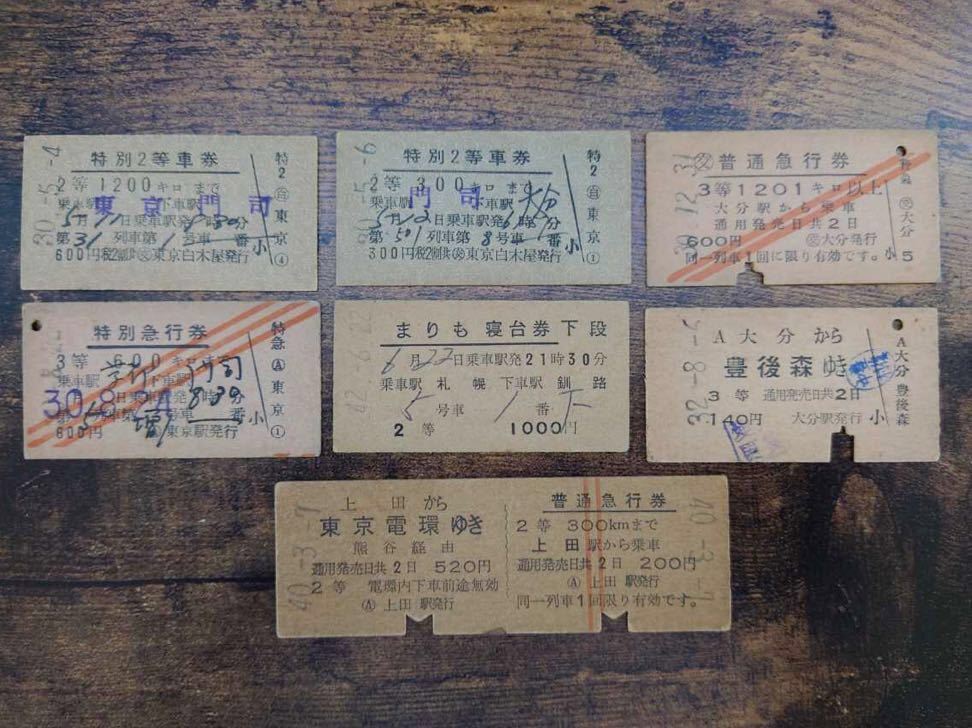 30.-5.-4
特別2等車券
2等 1200キロまで
乗車駅 東京 下車駅 門司
5月11日乗車駅発 時30分
第31列車第1号車 番
600円税2割共 東京白木屋発行
小
特2
東京
④
30.-5.-6
特別2等車券
2等 300キロまで
乗車駅 門司 下車駅 大分
5月12日乗車駅発 時 分
第501列車第8号車 番
300円税2割共 東京白木屋発行
小
特2
東京
①
普通急行券
3等1201キロ以上
大分駅から乗車
通用発売日共2日
600円 大分発行
同一列車1回に限り有効です。
小
大分
5
特別急行券
3等 600キロまで
乗車駅 京都 下車駅 門司
30.8
600円 Ⓐ東京駅発行
小
特急
Ⓐ
東京
①
42.-6.22
まりも 寝台券下段
6月22日乗車駅発21時30分
乗車駅 札幌 下車駅 釧路
5号車 1番 下
2等 1000円
32.-8.
A大分から
豊後森ゆき
3等 通用発売日共2日
140円 大分駅発行
小
A大分
豊後森
40.-3.-7
上田から
東京電環ゆき
熊谷経由
通用発売日共2日 520円
2等 電環内下車前途無効
Ⓐ上田駅発行
普通急行券
2等 300kmまで
上田駅から乗車
通用発売日共2日 200円
Ⓐ上田駅発行
同一列車1回限り有効です。
40.-3.-7